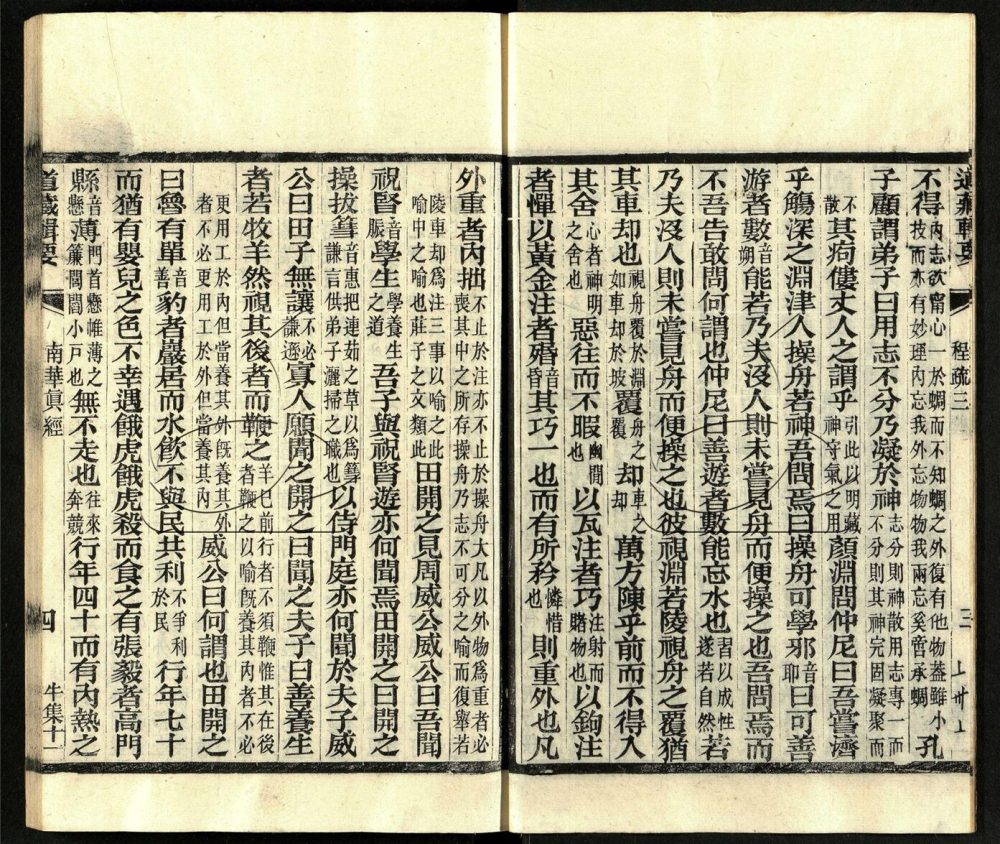 道藏輯要 程疏三 三
不得內志欲甯心一於蜩而不知蜩之外復有他物蓋雖小技而亦有妙理內忘我外忘物物我兩忘奚啻承蜩孔
子顧謂弟子曰用志不分乃凝於神志分則神散用志專一而不分則其神完固凝聚而不散其痀僂丈人之謂乎引此以明藏神守氣之用顏淵問仲尼曰吾嘗濟
乎觴深之淵津人操舟若神吾問焉曰操舟可學邪音耶曰可善
游者數音朔能若乃夫沒人則未嘗見舟而便操之也吾問焉而
不吾告敢問何謂也仲尼曰善游者數能忘水也習以成性遂若自然若
乃夫沒人則未嘗見舟而便操之也彼視淵若陵視舟之覆猶
其車却也視舟覆於淵舟之如車却於坡覆覆却車之却萬方陳乎前而不得入
其舍心者神明之舍也惡往而不暇幽閒也以瓦注者巧注射而賭物也以鉤注
者憚以黃金注者㱪音昏其巧一也而有所矜憐惜也則重外也凡
外重者內拙不止於注亦不止於操舟大凡以外物爲重者必喪其中之所存操舟乃志不可分之喻而復寧若
陵車却爲注三事以喻之此喻中之喻也莊子之文類此田開之見周威公威公曰吾聞
祝腎音脤學生學養生之道吾子與祝腎遊亦何聞焉田開之曰開之
操拔篲音惠把連茹之草以爲篲謙言供弟子灑掃之職也以侍門庭亦何聞於夫子威
公曰田子無讓不必謙遜寡人願聞之開之曰聞之夫子曰善養生
者若牧羊然視其後者而鞭之羊巳前行者不須鞭惟其在後者鞭之以喻旣養其內者不必
更用工於內但當養其外旣養其外者不必更用工於外但當養其內威公曰何謂也田開之
曰魯有單音善豹者巖居而水飲不與民共利不爭利於民行年七十
而猶有嬰兒之色不幸遇餓虎餓虎殺而食之有張毅者高門
縣音懸薄門首懸帷薄之簾閥閭小戸也無不走也往來奔競行年四十而有內熱之
道藏輯要 南華眞經 四 牛集十一